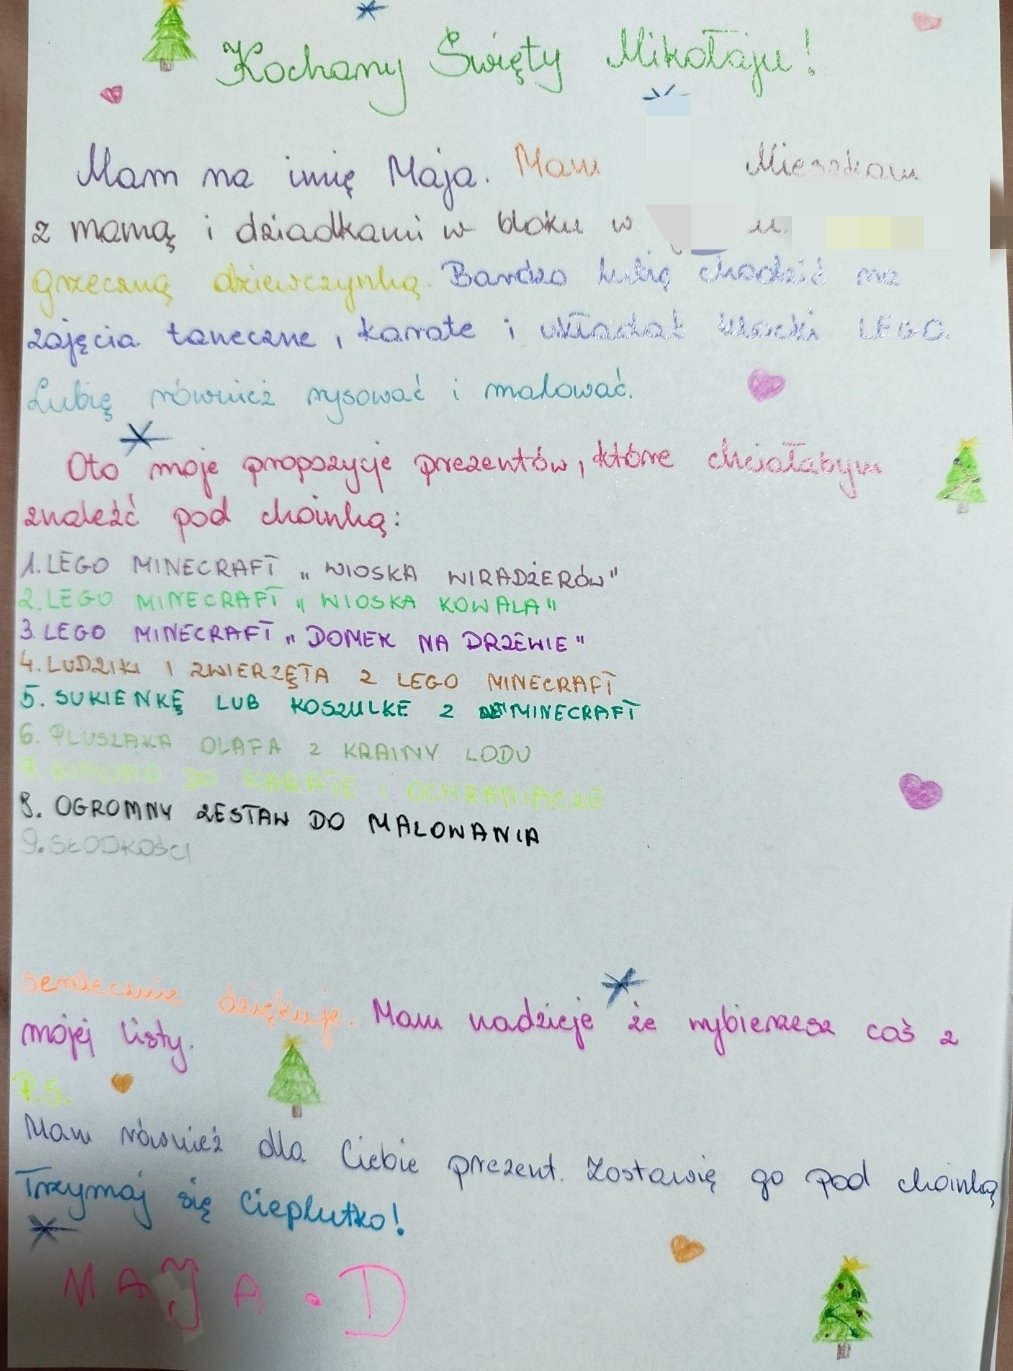 Kochany Święty Mikołaju!
Mam na imię Maja. Mam Mieszkam
z mamą i dziadkami w bloku w
grzeczną dziewczynką. Bardzo lubię chodzić na
zajęcia taneczne, karate i układać klocki LEGO.
Lubię również rysować i malować.
Oto moje propozycje prezentów, które chciałabym
znaleźć pod choinką:
1. LEGO MINECRAFT „WIOSKA WIRADŻERÓW"
2. LEGO MINECRAFT „WIOSKA KOWALA"
3. LEGO MINECRAFT „DOMEK NA DRZEWIE"
4. LUDZIKI I ZWIERZĘTA Z LEGO MINECRAFT
5. SUKIENKĘ LUB KOSZULKE Z MINECRAFT
6. PLUSZAKA OLAFA Z KRAINY LODU
7. KIMONO DO KARATE I OCHRANIACZE
8. OGROMNY ZESTAW DO MALOWANIA
9. SŁODKOŚCI
Serdecznie dziękuję. Mam nadzieje że wybierzesz coś z
mojej listy.
P.S.
Mam również dla Ciebie prezent. Zostawię go pod choinką
Trzymaj się cieplutko!
MAJA . D